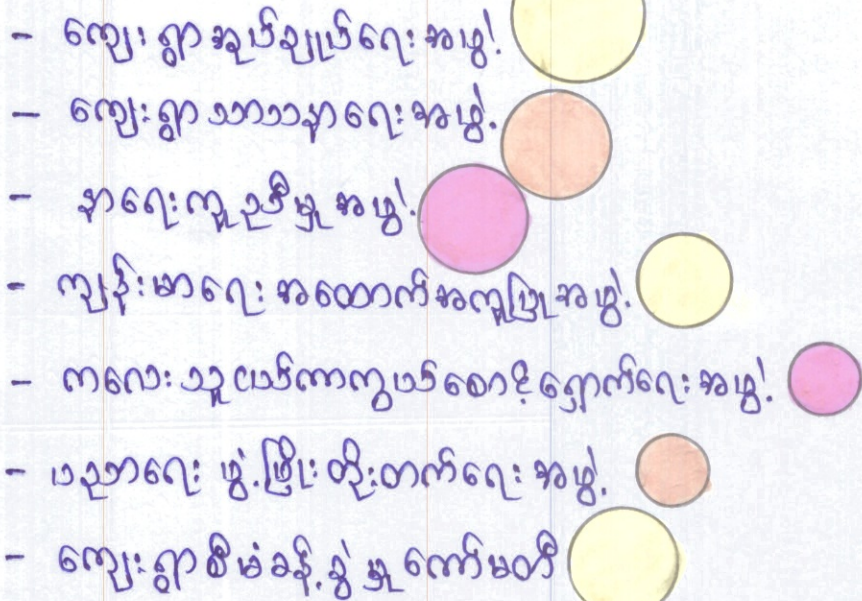 - ကျေးရွာအုပ်ချုပ်ရေးအဖွဲ့
- ကျေးရွာသာသနာရေးအဖွဲ့
- နာရေးကူညီမှုအဖွဲ့
- ကျန်းမာရေးအထောက်အကူပြုအဖွဲ့
- ကလေးသူငယ်ကာကွယ်စောင့်ရှောက်ရေးအဖွဲ့
- ပညာရေးဖွံ့ဖြိုးတိုးတက်ရေးအဖွဲ့
- ကျေးရွာစီမံခန့်ခွဲမှုကော်မတီ